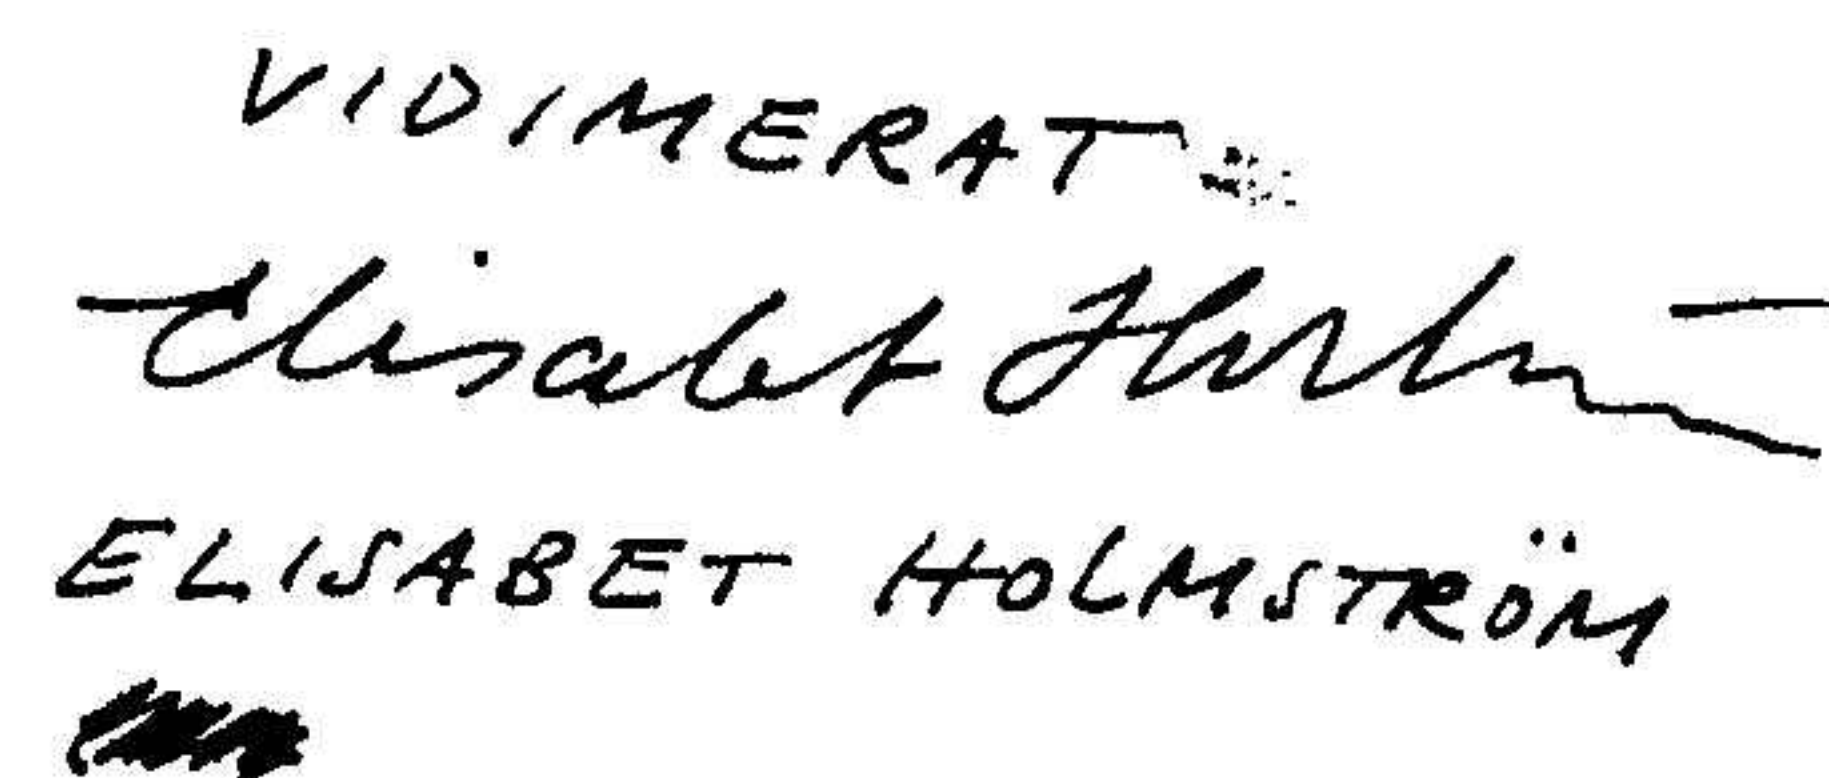 VIDIMERAT
Elisabet Holm
ELISABET HOLMSTRÖM